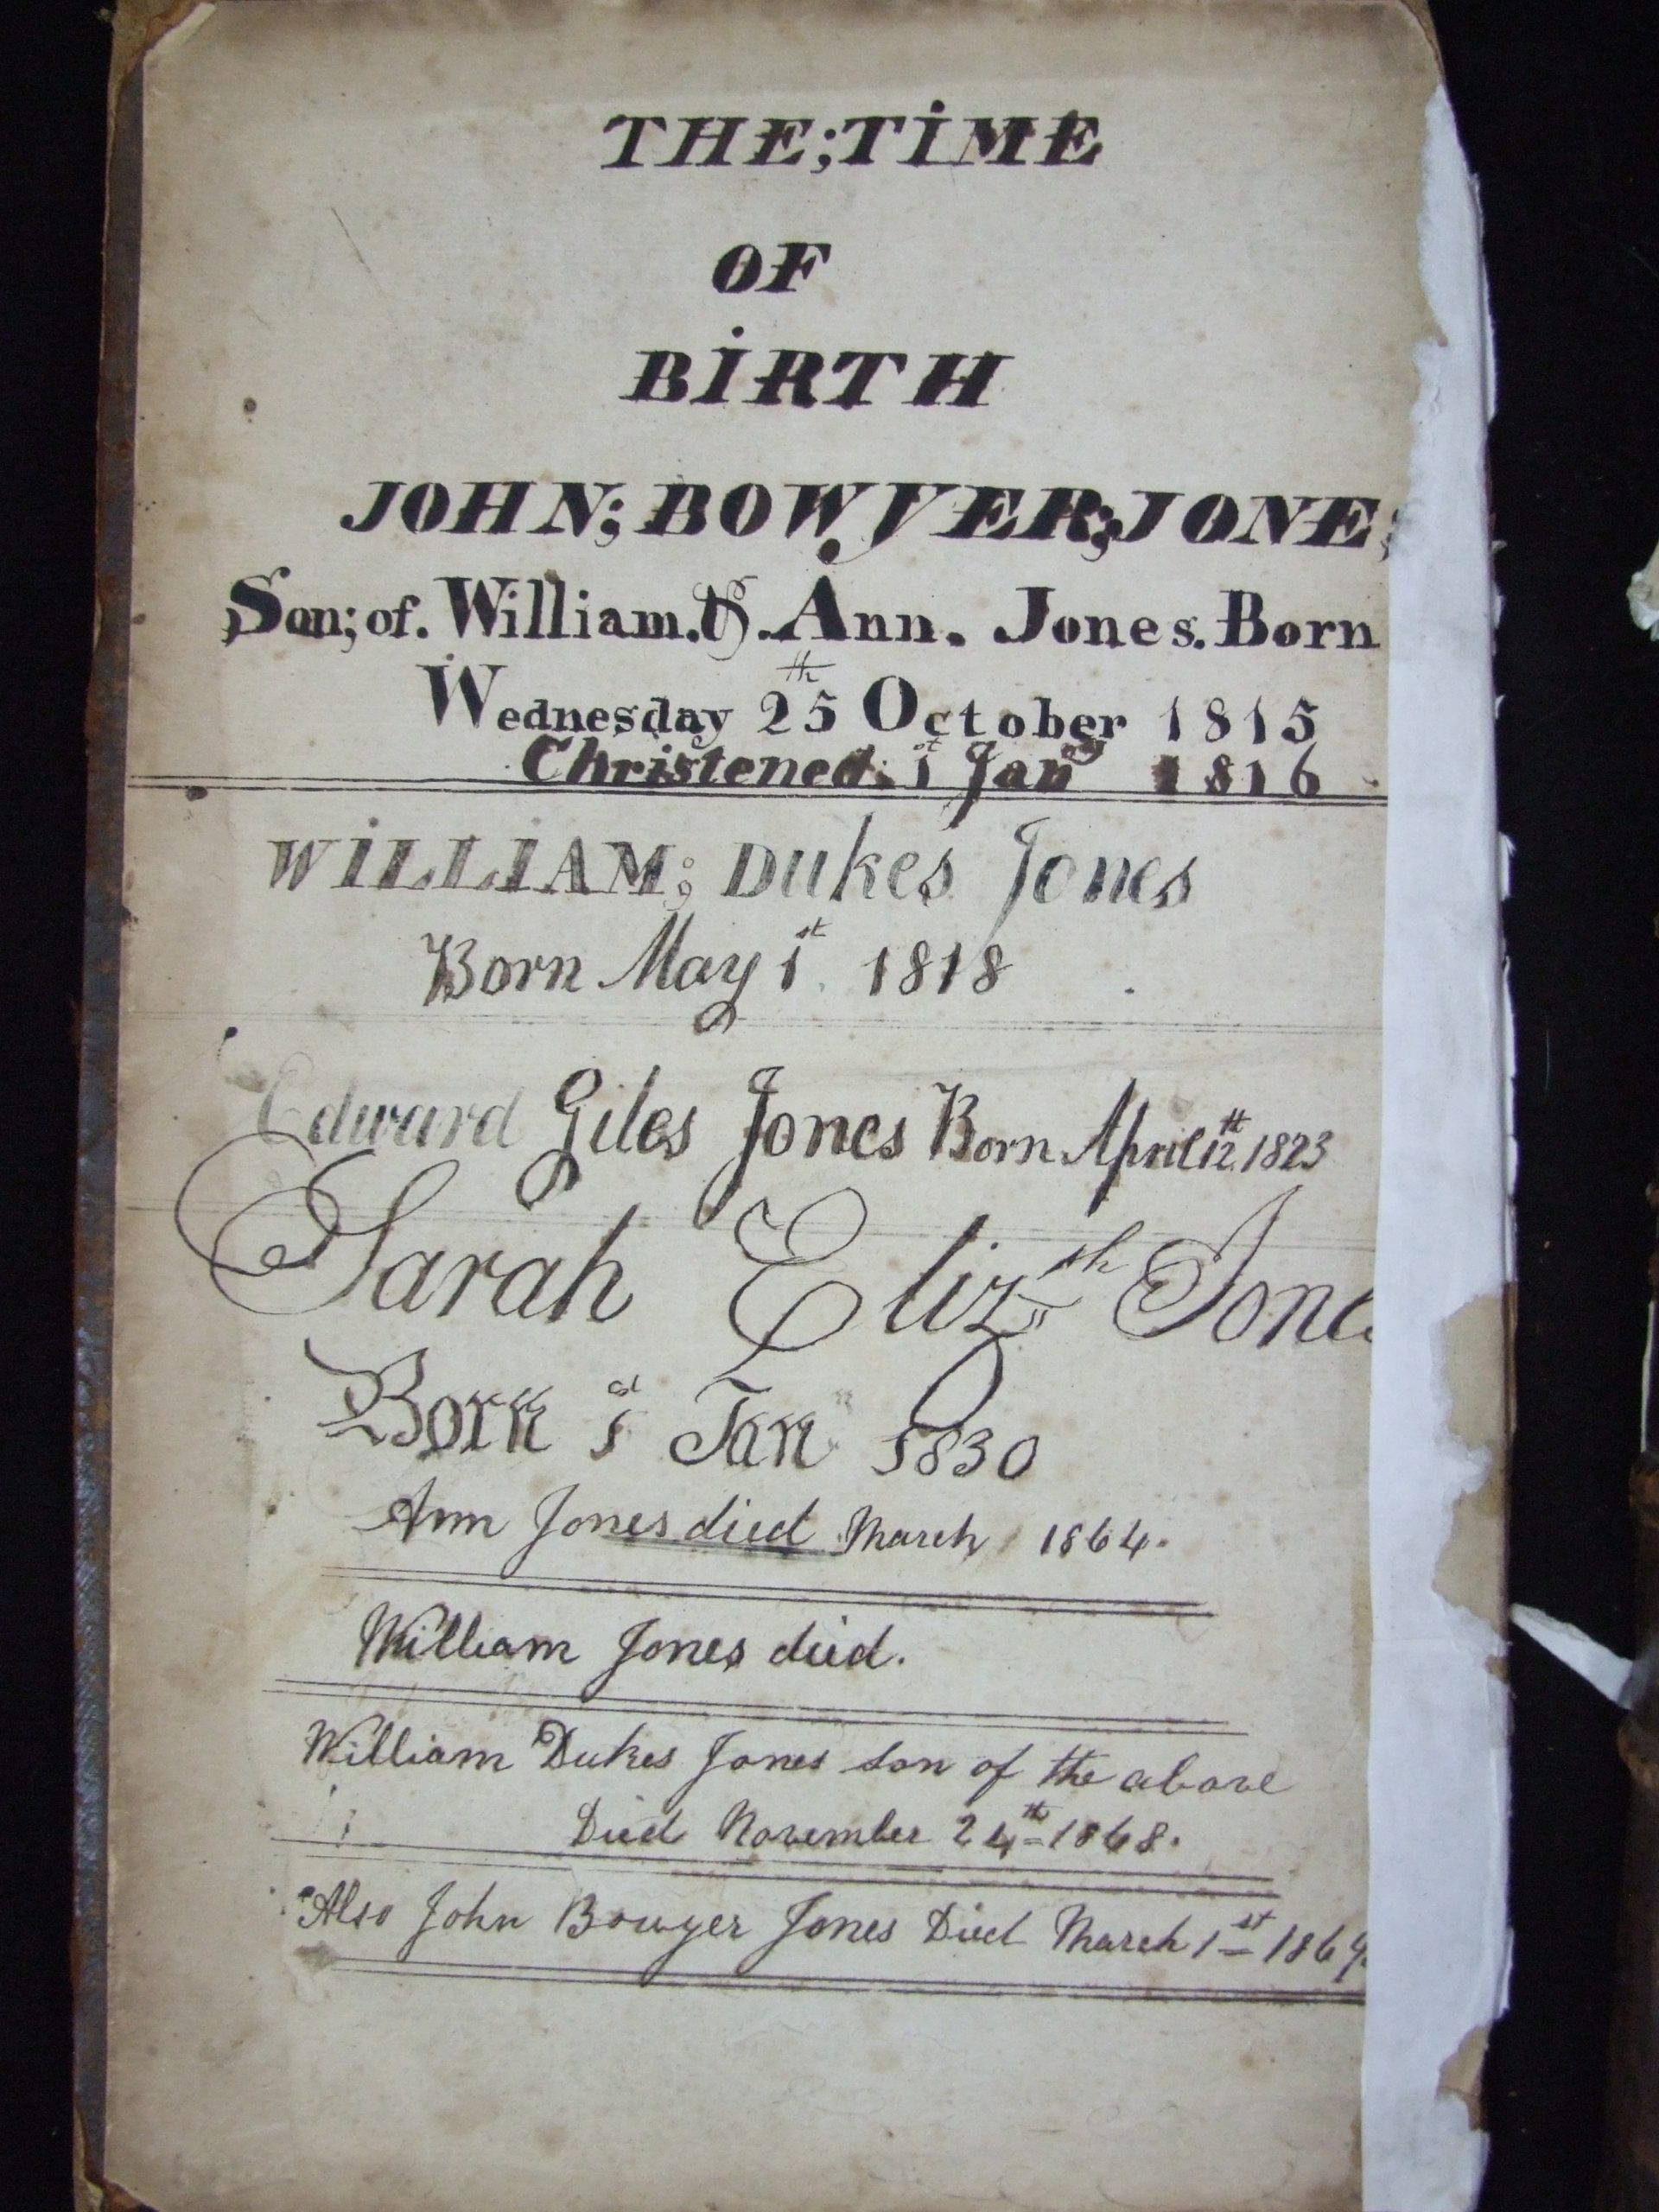 THE; TIME
OF
BIRTH
JOHN; BOWYER; JONE
Son; of. William. & .Ann. Jones. Born
Wednesday 25th October 1815
Christened. 1st Jany 1816
WILLIAM; Dukes Jones
Born May 1st 1818
Edward Giles Jones Born April 12th 1823
Sarah Elizth Jone
Born 1st Jan 1830
Ann Jones died March 1864.
William Jones died.
William Dukes Jones son of the above
Died November 24th 1868.
Also John Bowyer Jones Died March 1st 1869